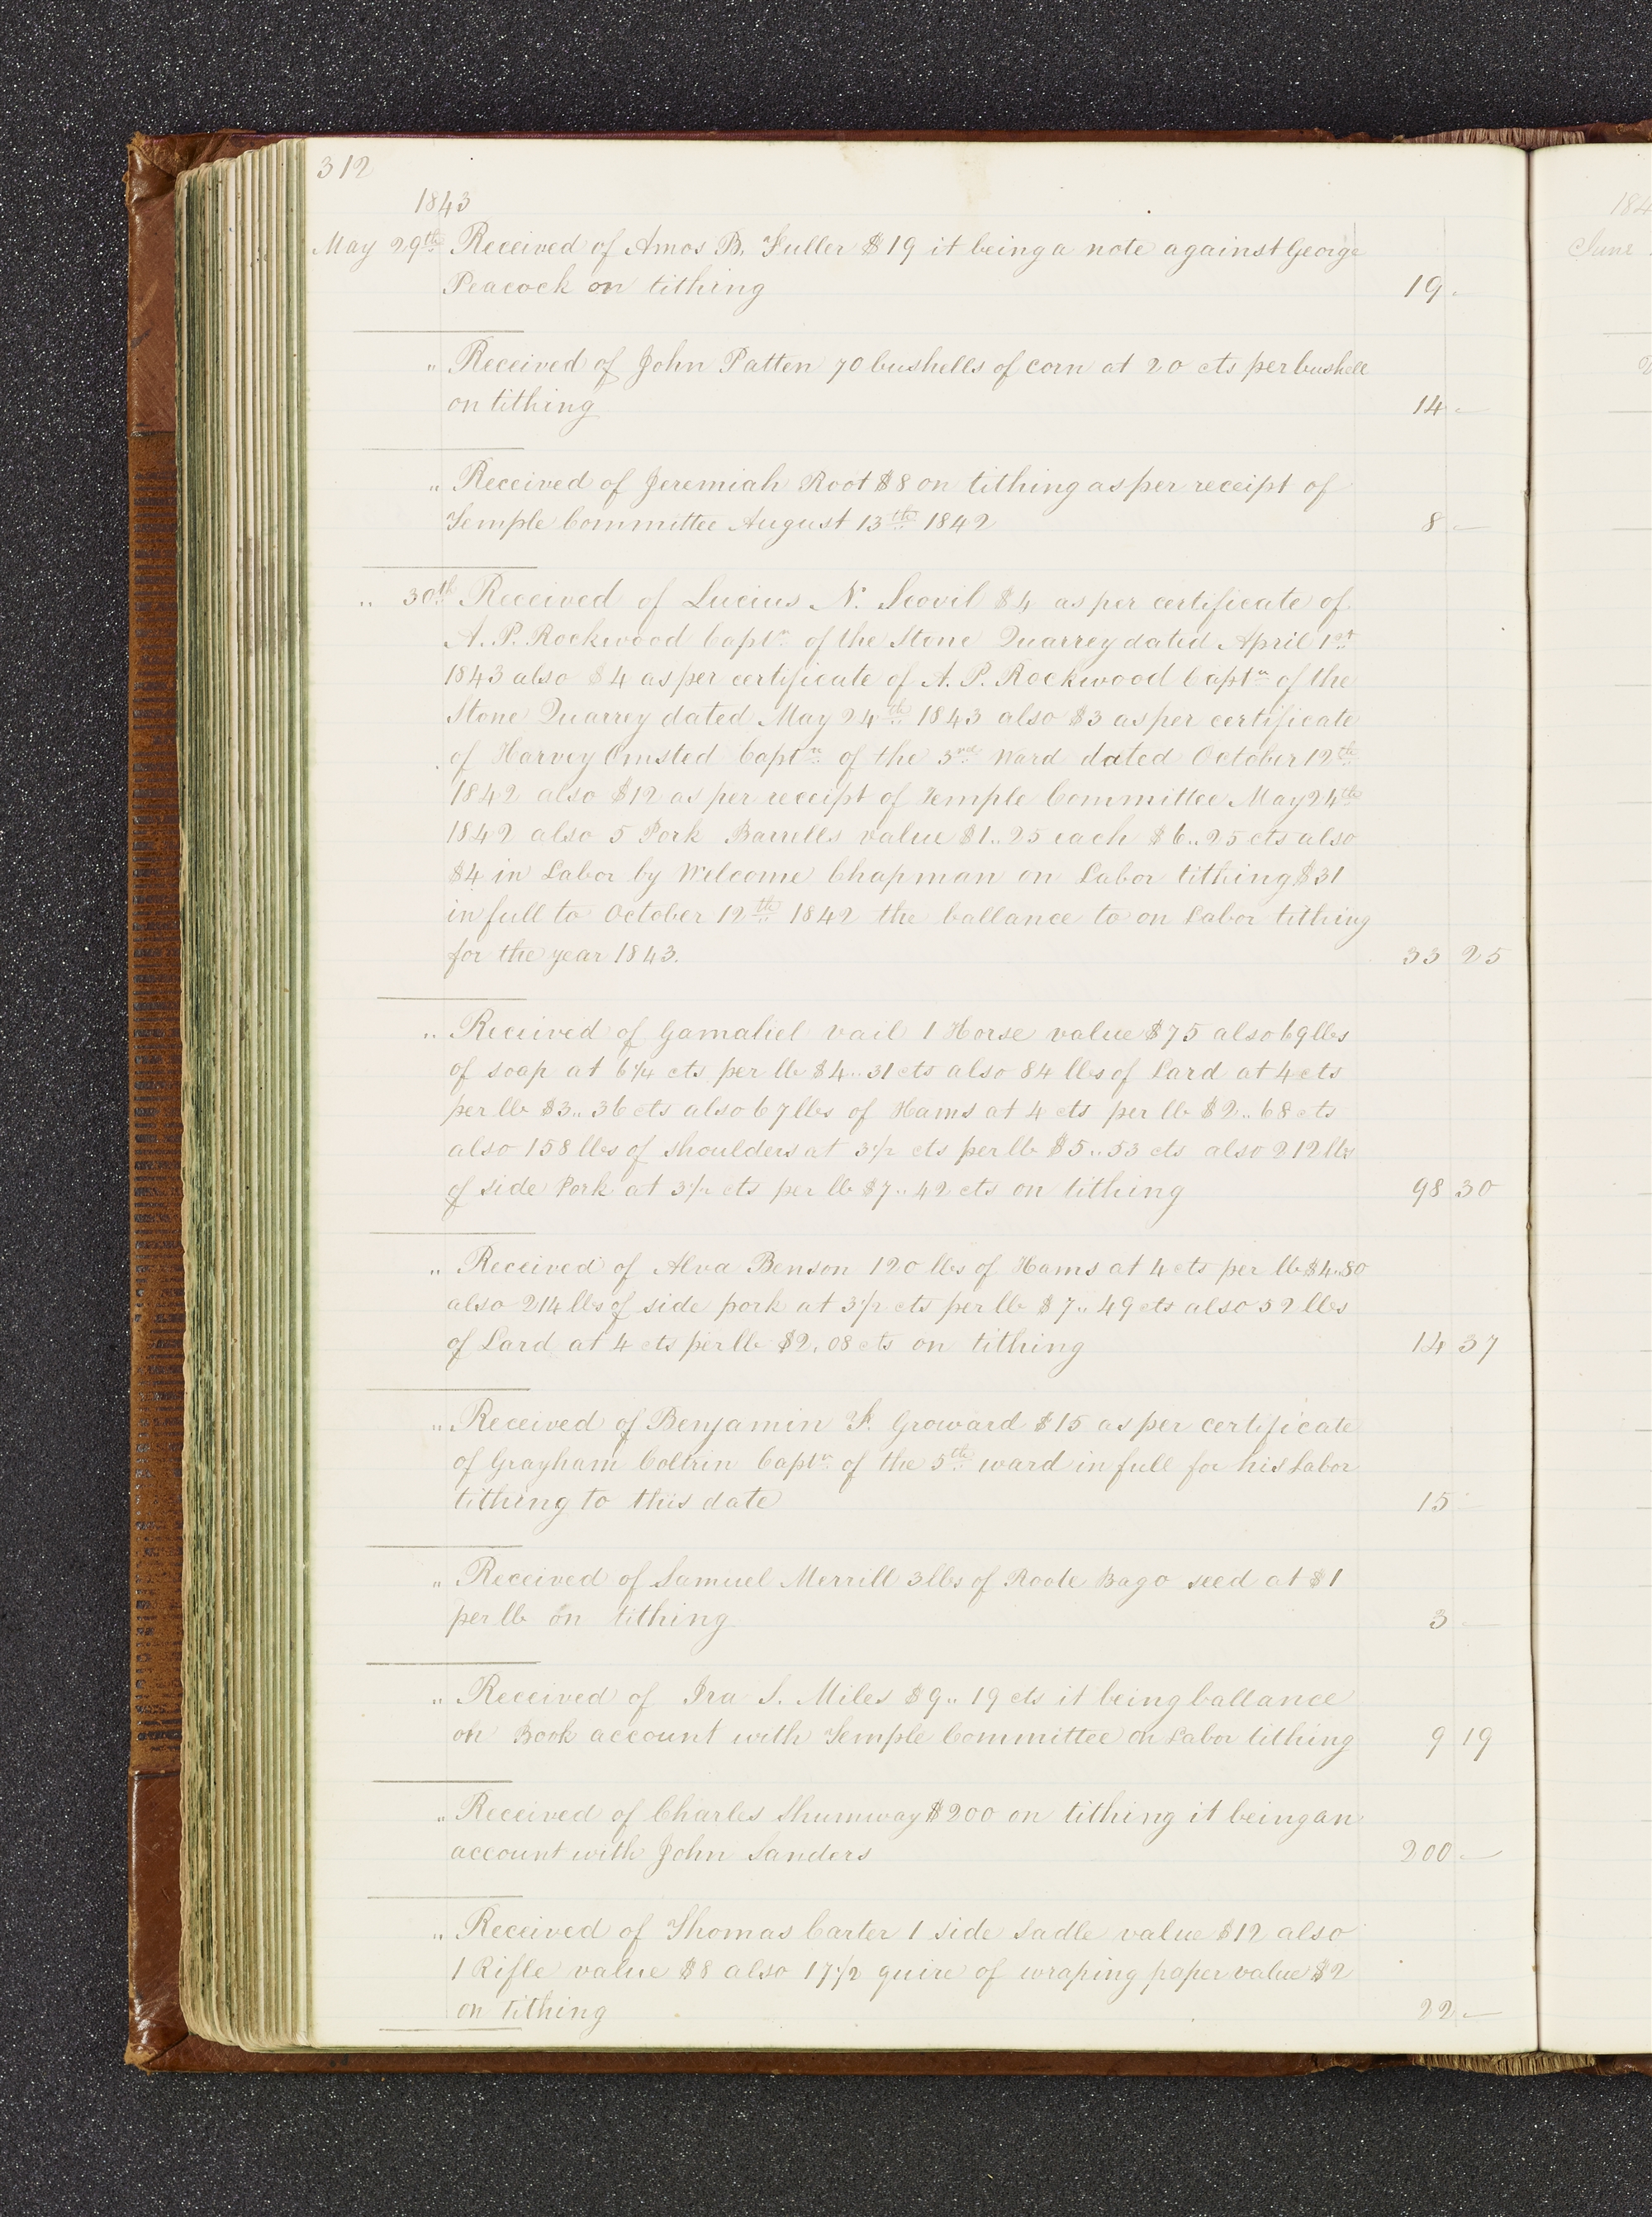 312
1843
May 29th Received of Amos B. Fuller $19 it being a note against George
Peacock on tithing 19 -
" Received of John Patten 70 bushells of corn at 20 cts per bushell
on tithing 14 -
" Received of Jeremiah Root $8 on tithing as per receipt of
Temple Committee August 13th 1842 8 -
" 30th Received of Lucius N. Scovil $4 as per certificate of
A. P. Rockwood Captn of the Stone Quarrey dated April 1st
1843 also $4 as per certificate of A. P. Rockwood Captn of the
Stone Quarrey dated May 24th 1843 also $3 as per certificate
of Harvey Omsted Captn of the 3rd Ward dated October 12th
1842 also $12 as per receipt of Temple Committee May 24th
1842 also 5 Pork Barrells value $1..25 each $6..25 cts also
$4 in Labor by Welcome Chapman on Labor tithing $31
in full to October 12th 1842 the ballance to on Labor tithing
for the year 1843. 33 25
" Received of Gamaliel vail 1 Horse value $75 also 69 lbs
of soap at 6¼ cts per lb $4..31 cts also 84 lbs of Lard at 4 cts
per lb $3..36 cts also 67 lbs of Hams at 4 cts per lb $2..68 cts
also 158 lbs of shoulders at 3½ cts per lb $5..53 cts also 212 lbs
of side Pork at 3½ cts per lb $7..42 cts on tithing 98 30
" Received of Alva Benson 120 lbs of Hams at 4 cts per lb $4.80
also 214 lbs of side pork at 3½ cts per lb $7..49 cts also 52 lbs
of Lard at 4 cts per lb $2.08 cts on tithing 14 37
" Received of Benjamin F. Groward $15 as per certificate
of Grayham Coltrin Captn of the 5th ward in full for his Labor
tithing to this date 15
" Received of Samuel Merrill 3 lbs of Roote Bago seed at $1
per lb on tithing 3 -
" Received of Ira S. Miles $9..19 cts it being ballance
on Book account with Temple Committee on Labor tithing 9 19
" Received of Charles Shumway $200 on tithing it being an
account with John Sanders 200 -
" Received of Thomas Carter 1 side Sadle value $12 also
1 Rifle value $8 also 17½ quire of wraping paper value $2
on tithing 22 -
184
June